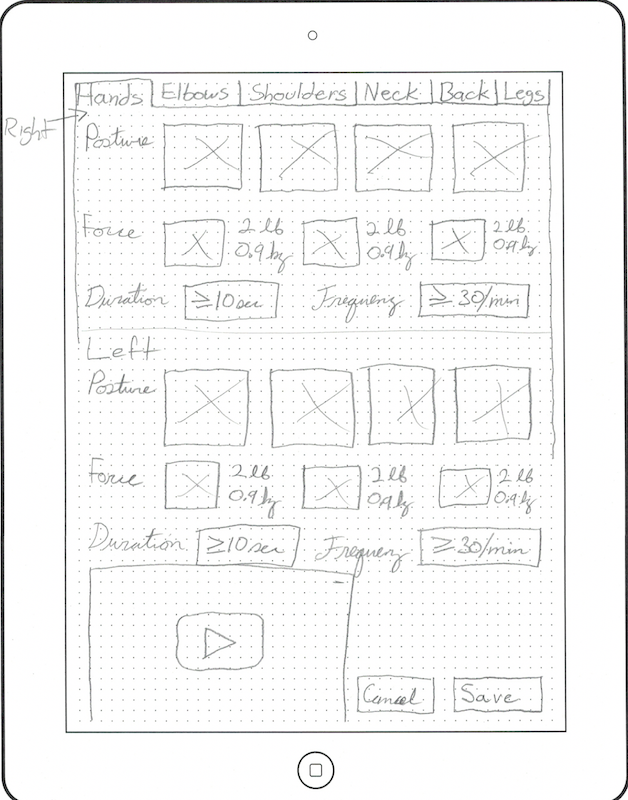 Hands Elbows Shoulders Neck Back Legs
Right
Posture
Force 2 lb 2 lb 2 lb
0.9 kg 0.9 kg 0.9 kg
Duration ≥10 sec Frequency ≥30/min
Left
Posture
Force 2 lb 2 lb 2 lb
0.9 kg 0.9 kg 0.9 kg
Duration ≥10 sec Frequency ≥30/min
Cancel Save